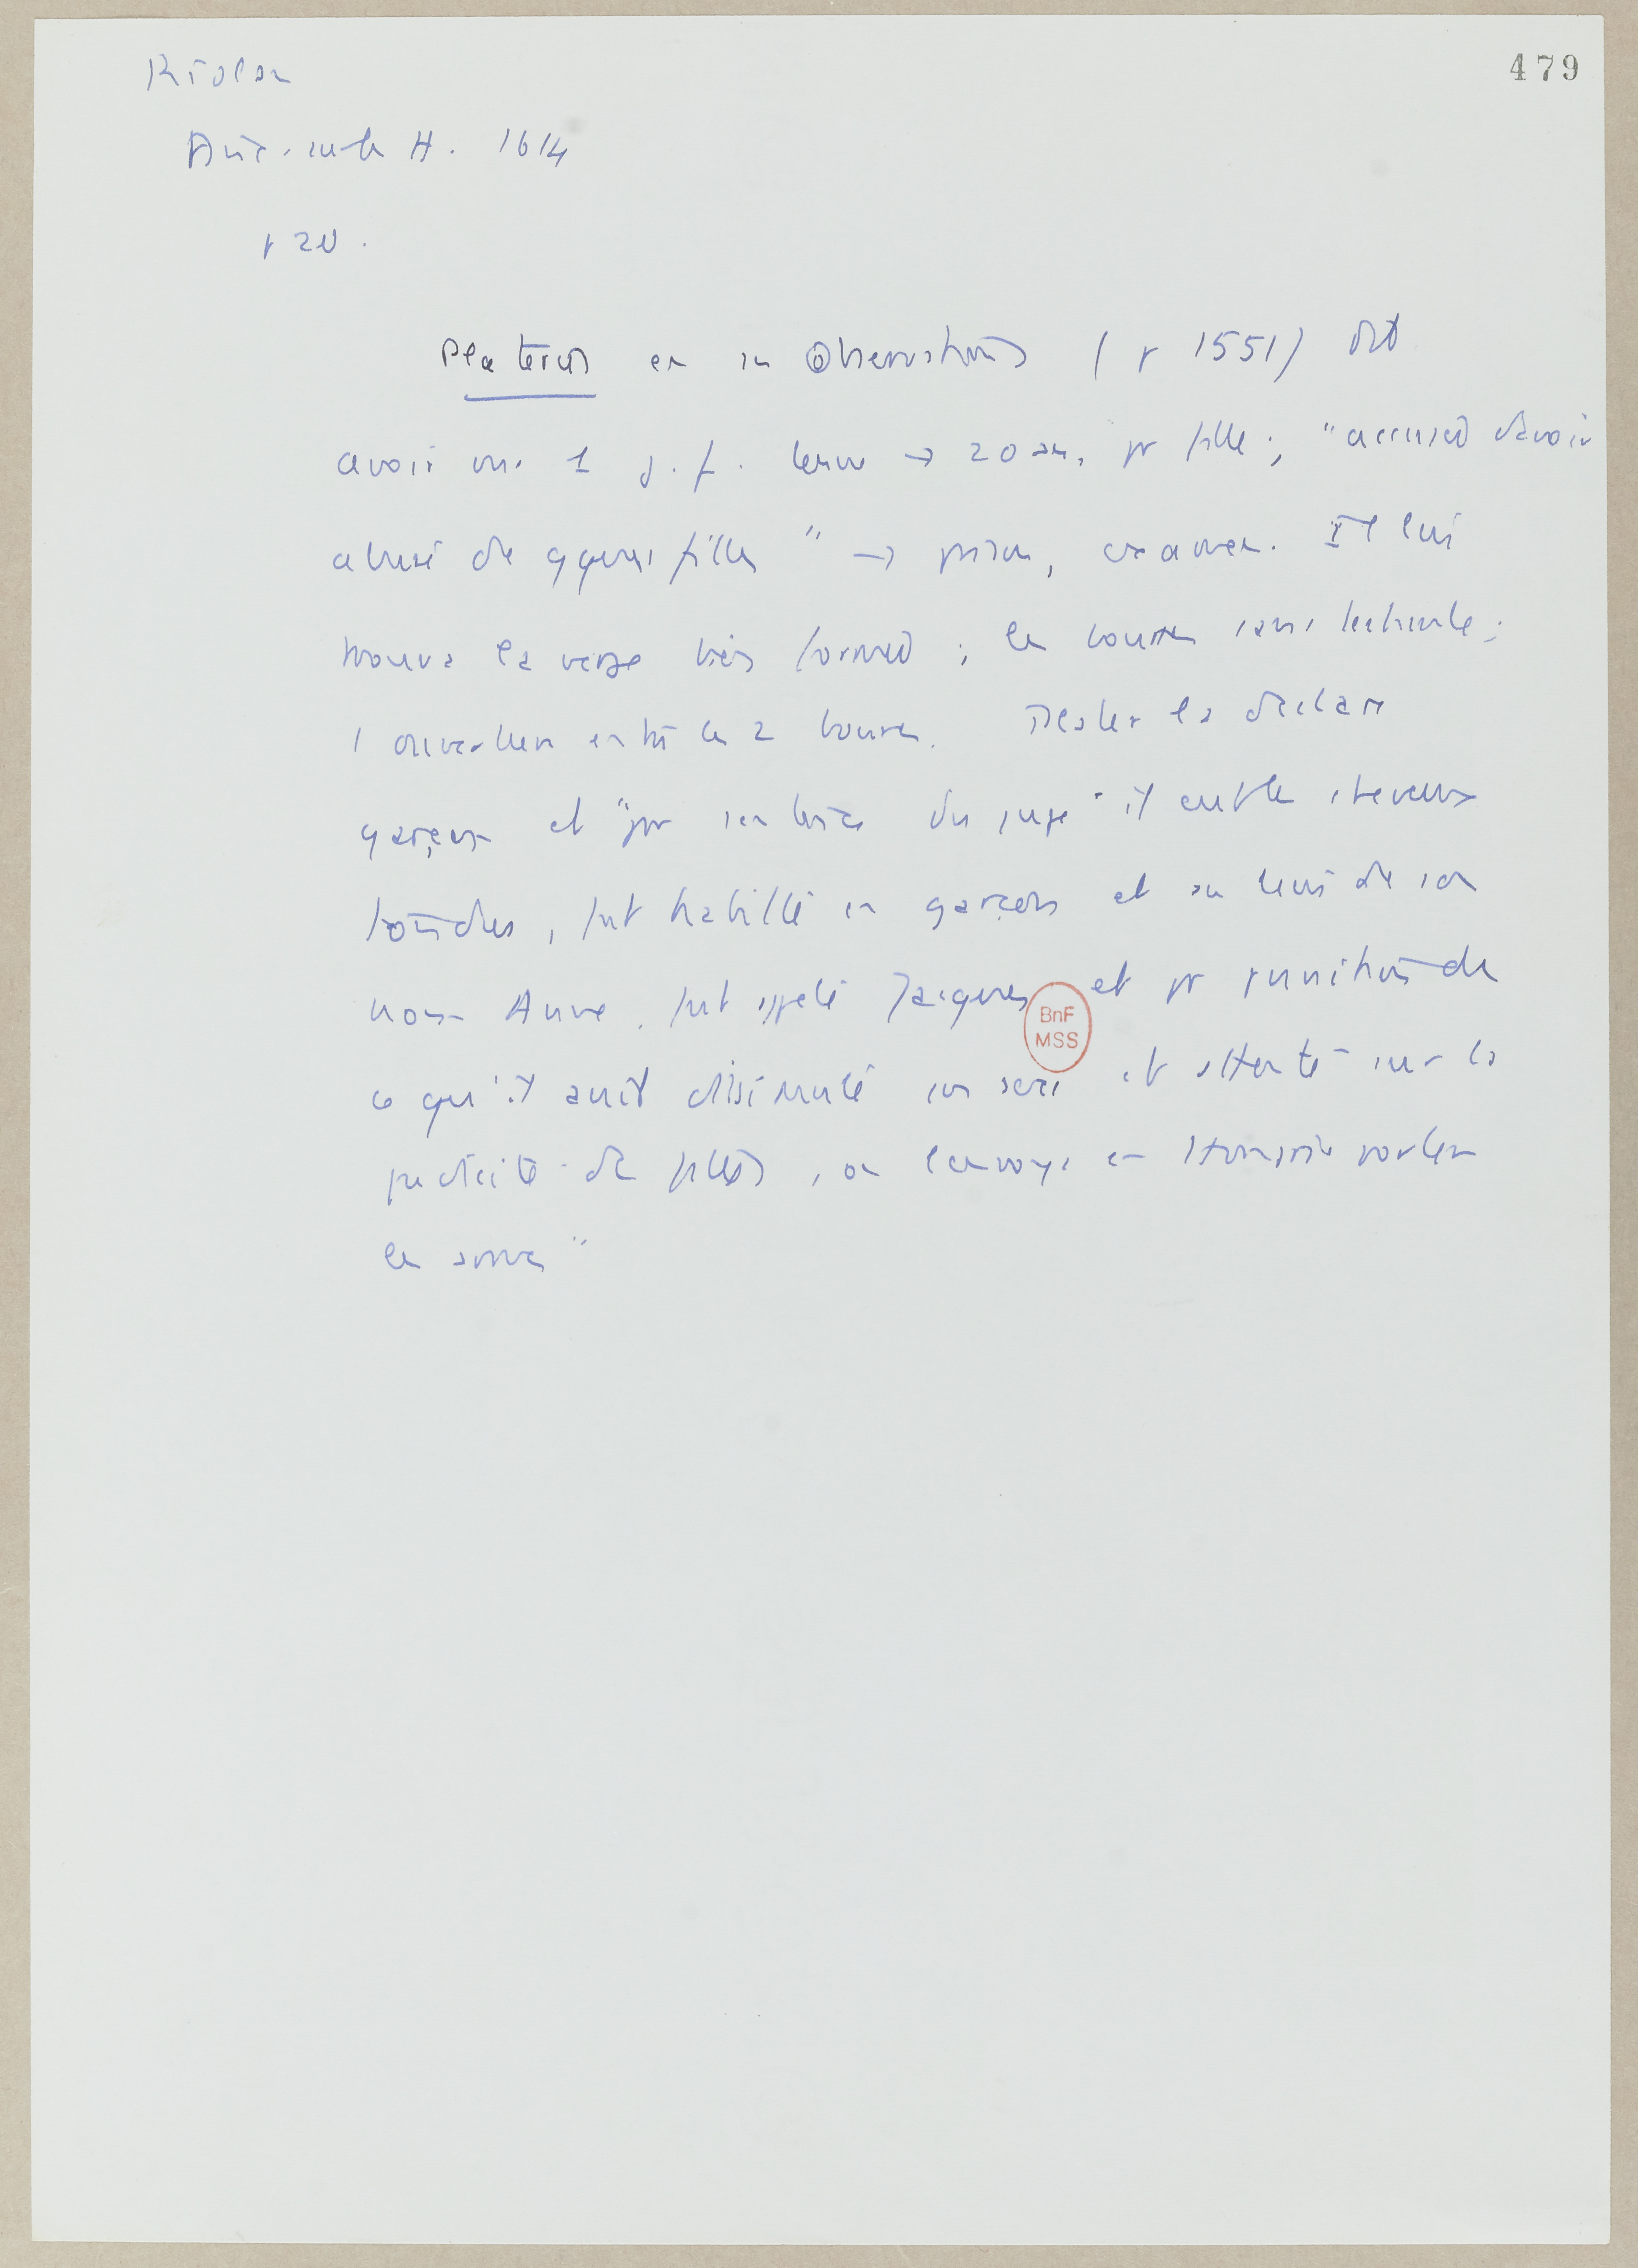 Riolan
479
Disc. sur les H. 1614
p 20.
Platerus en ses Observations (p 1551) dit
avoir vu 1 j. f. tenue → 20 ans pr fille ; "accusé d'avoir
abusé de qques filles" → prison, examen. Il lui
trouva la verge bien formée ; les bourses sans testicule ;
1 ouverture entre les 2 bourses. Plater le déclare
garçon et "par sentence du juge" il eut les cheveux
tondus, fut habillé en garçon et au lieu de son
nom Anne, fut appelé Jacques et pr punition de
ce qu'il avait dissimulé son sexe et attenté sur la
pudicité de filles, on l'envoya en porter
les armes"
BnF
MSS